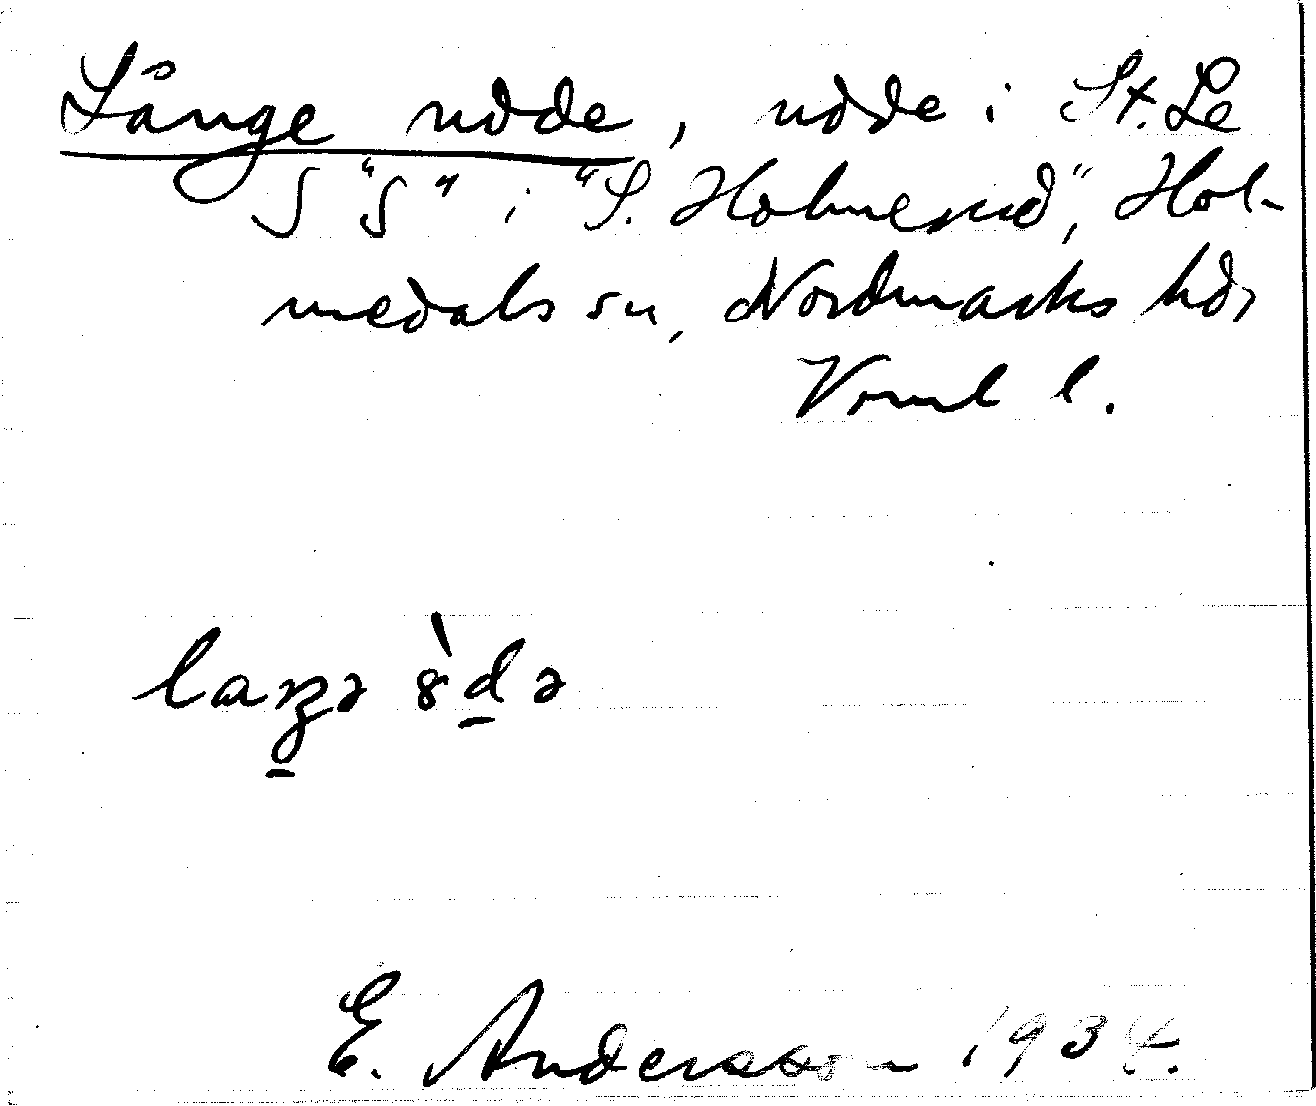 Långe udde, udde i St. Le
S "S" i "S. Holmerud", Hol-
medals sn, Nordmarks hdr
Vrml l.
laŋə ɞ̀d̠ə
E. Andersson 1934.